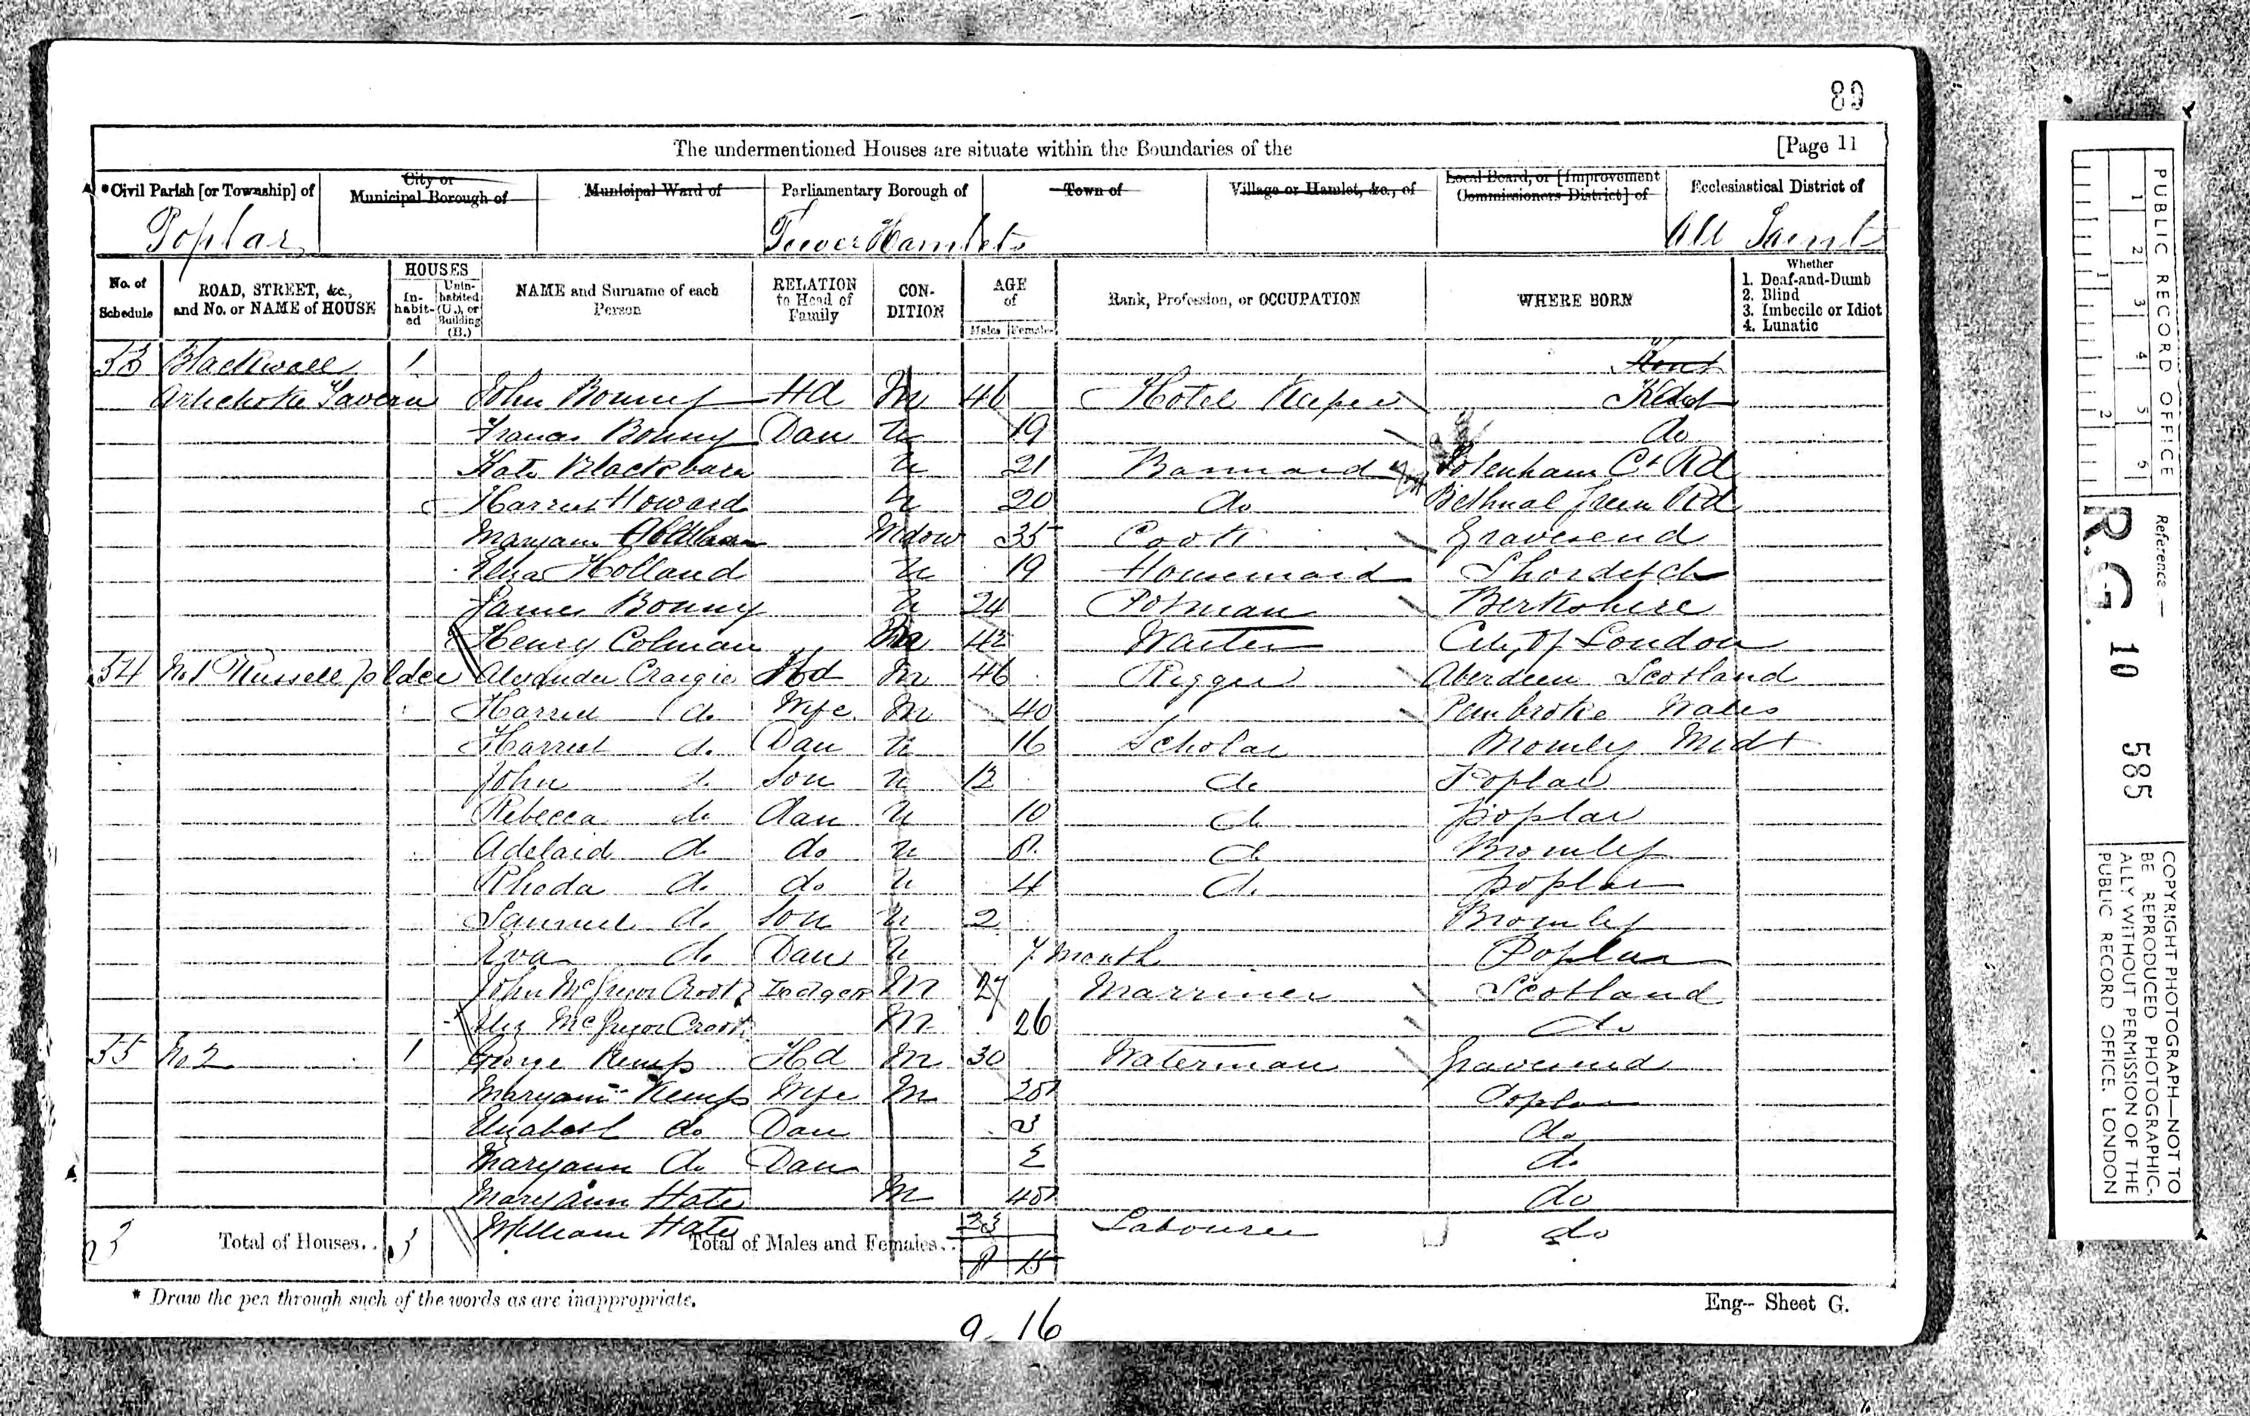 89
The undermentioned Houses are situate within the Boundaries of the [Page 11
*Civil Parish [or Township] of City or Municipal Borough of Municipal Ward of Parliamentary Borough of Town of Village or Hamlet, &c., of Local Board, or [Improvement Commissioners District] of Ecclesiastical District of
Poplar Tower Hamlets All Saints
No. of Schedule ROAD, STREET, &c., and No. or NAME of HOUSE HOUSES Inhabited Uninhabited (U.), or Building (B.) NAME and Surname of each Person RELATION to Head of Family CONDITION AGE of Males Females Rank, Profession, or OCCUPATION WHERE BORN Whether 1. Deaf-and-Dumb 2. Blind 3. Imbecile or Idiot 4. Lunatic
53 Blackwall 1 Kent
Artichoke Tavern John Bonny Hd M 46 Hotel Keeper Kent
Frances Bonny Dau U 19 do
Kate Blackburn U 21 Barmaid Totenham Ct Rd
Harriet Howard U 20 do Bethnal Green Rd
Maryann Widow 35 Cook Gravesend
Eliza Holland U 19 Housemaid Shorditch
James Bonny U 24 Potman Berkshire
Henry Colman 42 Waiter City of London
54 No 1 Russell Alexander Craigie Hd M 46 Rigger Aberdeen Scotland
Harriet do Wife M 40 Pembroke Wales
Harriet do Dau U 16 Scholar Bromley Midx
John do Son U 12 do Poplar
Rebecca do dau U 10 do Poplar
Adelaid do do U 8 do Bromley
Rhoda do do U 4 do Poplar
Samuel do Son U 2 Bromley
Eva do Dau U 7 month Poplar
John McGregor Lodger M 27 Marriner Scotland
Eliz McGregor M 26 do
55 No 2 1 George Kemp Hd M 30 Waterman Gravesend
Maryann Kemp Wife M 28 Poplar
Elizabeth do Dau 3 do
Maryann do Dau do
Maryann Hate M 48 do
William Hate 23 Labourer do
3 Total of Houses.. 3 Total of Males and Females.. 8 15
* Draw the pen through such of the words as are inappropriate. Eng-- Sheet G.
9 16
PUBLIC RECORD OFFICE
1 2 3 4 5 6
1 2
Reference —
R.G. 10 585
COPYRIGHT PHOTOGRAPH—NOT TO
BE REPRODUCED PHOTOGRAPHIC-
ALLY WITHOUT PERMISSION OF THE
PUBLIC RECORD OFFICE. LONDON